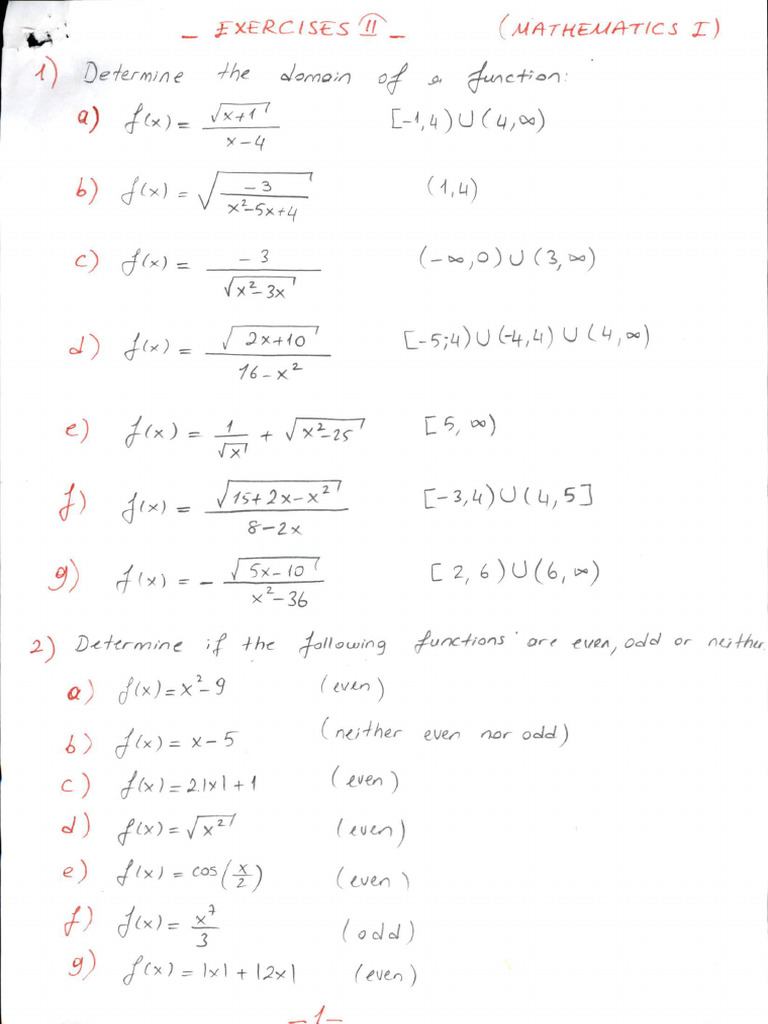 - EXERCISES II - (MATHEMATICS I)
1) Determine the domain of a function:
a) f(x) = √(x+1) / (x-4) [-1,4) ∪ (4,∞)
b) f(x) = √(-3 / (x²-5x+4)) (1,4)
c) f(x) = -3 / √(x²-3x) (-∞,0) ∪ (3,∞)
d) f(x) = √(2x+10) / (16-x²) [-5;4) ∪ (-4,4) ∪ (4,∞)
e) f(x) = 1/√x + √(x²-25) [5,∞)
f) f(x) = √(15+2x-x²) / (8-2x) [-3,4) ∪ (4,5]
g) f(x) = - √(5x-10) / (x²-36) [2,6) ∪ (6,∞)
2) Determine if the following functions are even, odd or neither.
a) f(x) = x²-9 (even)
b) f(x) = x-5 (neither even nor odd)
c) f(x) = 2.|x|+1 (even)
d) f(x) = √x² (even)
e) f(x) = cos(x/2) (even)
f) f(x) = x⁷/3 (odd)
g) f(x) = |x| + |2x| (even)
-1-